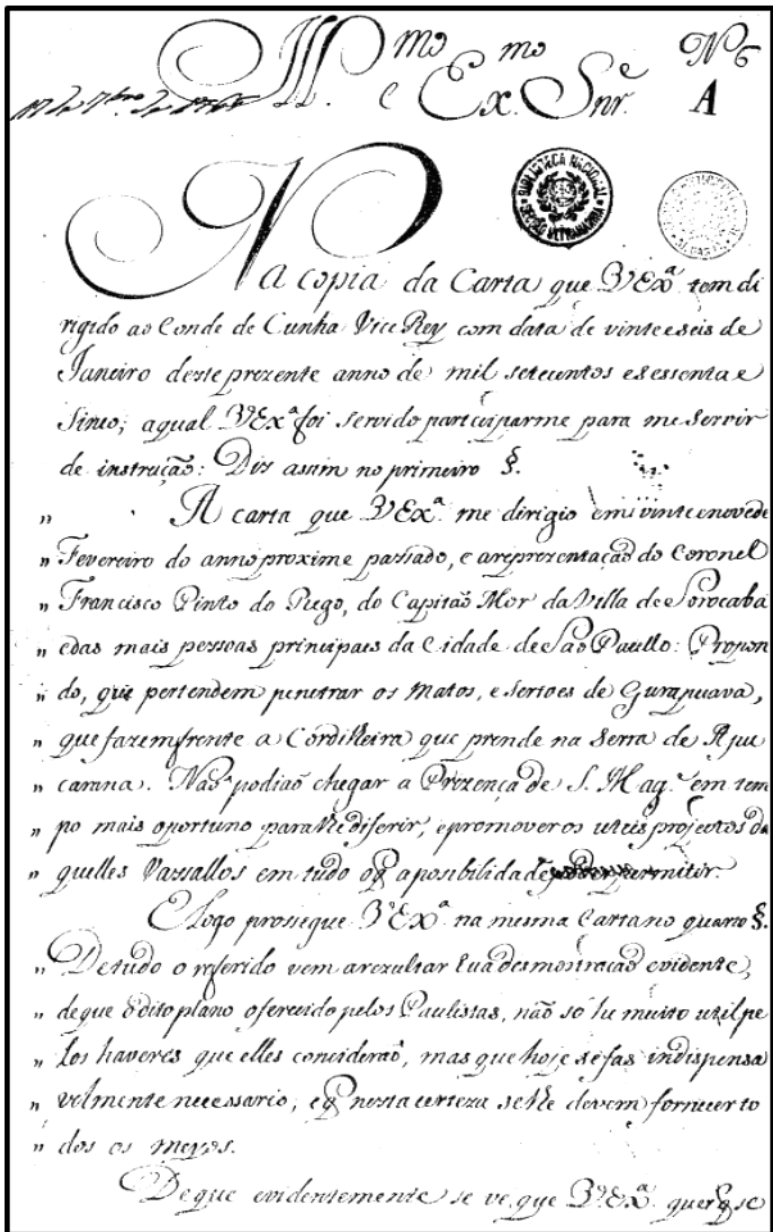 Ill.mo e Ex.mo Snr.e
N.o 6
A
17 de 7bro de 1765
BIBLIOTECA NACIONAL
SECÇÃO ULTRAMARINA
Na copia da Carta que V Ex.a tem di
rigido ao Conde de Cunha Vice Rey com data de vinte e seis de
Janeiro deste prezente anno de mil setecentos e sessenta e
Sinco; aqual V Ex.a foi servido participarme para me servir
de instrução: Diz assim no primeiro §.
" A carta que V Ex.a me dirigio em vinte enovede
" Fevereiro do anno proxime passado, e areprezentação do Coronel
" Francisco Pinto do Rego, do Capitaõ Mor da Villa de Sorocaba
" edas mais pessoas principaes da Cidade de Saõ Paullo: Propon
" do, que pertendem penetrar os Matos, e sertoes de Gurapuava,
" que fazem frente a Cordilheira que prende na Serra de Apu
" carana. Naõ podiaõ chegar a Prezença de S. Mag.e em tem
" po mais oportuno para lhe diferir, epromover os uteis projectos da
" quelles Vassallos em tudo oq̃ aposibilidade permitir.
E logo prosegue V.Ex.a na mesma Carta no quarto §.
" De tudo o referido vem arezultar hua desmostração evidente,
" deque o dito plano oferecido pelos Paulistas, não só he muito util pe
" los haveres que elles concideraõ, mas que hoje se fas indispensa
" velmente necessario; e q̃ nesta certeza se lhe devem fornecer to
" dos os meyos.
De que evidentemente se ve que V.Ex.a quer q̃ se